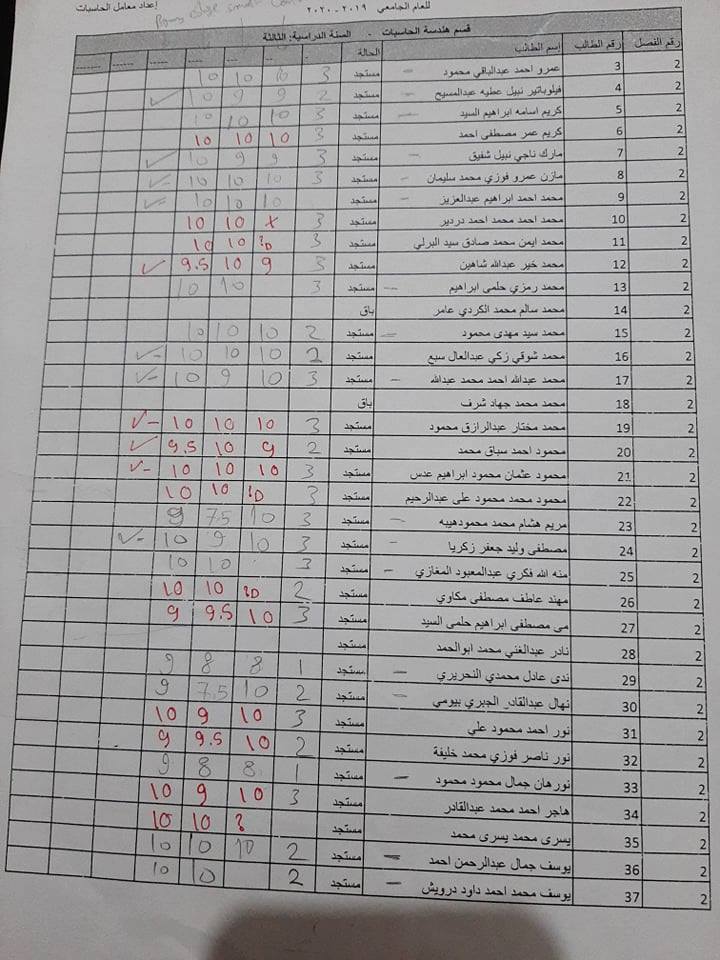 للعام الجامعي ٢٠١٩ - ٢٠٢٠
إعداد معامل الحاسبات
قسم هندسة الحاسبات - السنة الدراسية: الثالثة
رقم الفصل رقم الطالب إسم الطالب الحالة
2 3 عمرو احمد عبدالباقي محمود مستجد 3 10 10 10
2 4 فيلوباتير نبيل عطيه عبدالمسيح مستجد 2 9 9 10 ✓
2 5 كريم اسامه ابراهيم السيد مستجد 3 10 10 10
2 6 كريم عمر مصطفى احمد مستجد 3 10 10 10
2 7 مارك ناجي نبيل شفيق مستجد 3 9 9 10 ✓
2 8 مازن عمرو فوزي محمد سليمان مستجد 3 10 10 10 ✓
2 9 محمد احمد ابراهيم عبدالعزيز مستجد 10 10 10 ✓
2 10 محمد احمد محمد احمد دردير مستجد 3 x 10 10
2 11 محمد ايمن محمد صادق سيد البرلي مستجد 3 10 10
2 12 محمد خير عبدالله شاهين مستجد 3 9 10 9.5 ✓
2 13 محمد رمزي حلمى ابراهيم مستجد 3 10 10
2 14 محمد سالم محمد الكردي عامر باق
2 15 محمد سيد مهدى محمود مستجد 2 10 10 10
2 16 محمد شوقي زكي عبدالعال سبع مستجد 2 10 10 10 ✓-
2 17 محمد عبدالله احمد محمد عبدالله مستجد 3 10 9 10 ✓-
2 18 محمد محمد جهاد شرف باق
2 19 محمد مختار عبدالرازق محمود مستجد 3 10 10 10 ✓-
2 20 محمود احمد سباق محمد مستجد 2 9 10 9.5 ✓
2 21 محمود عثمان محمود ابراهيم عدس مستجد 3 10 10 10 ✓-
2 22 محمود محمد محمود على عبدالرحيم مستجد 3 10 10
2 23 مريم هشام محمد محمودهيبه مستجد 3 10 7.5 9
2 24 مصطفى وليد جعفر زكريا مستجد 3 10 9 10 ✓-
2 25 منه الله فكري عبدالمعبود المغازي مستجد 3 10 10
2 26 مهند عاطف مصطفى مكاوي مستجد 2 10 10
2 27 مى مصطفى ابراهيم حلمى السيد مستجد 3 10 9.5 9
2 28 نادر عبدالغني محمد ابوالحمد مستجد
2 29 ندى عادل محمدي النحريري مستجد 1 8 8 9
2 30 نهال عبدالقادر الجبري بيومي مستجد 2 10 7.5 9
2 31 نور احمد محمود علي مستجد 3 10 9 10
2 32 نور ناصر فوزي محمد خليفة مستجد 2 10 9.5 9
2 33 نورهان جمال محمود محمود مستجد 1 8 8 9
2 34 هاجر احمد محمد عبدالقادر مستجد 3 10 9 10
2 35 يسرى محمد يسرى محمد مستجد ? 10 10
2 36 يوسف جمال عبدالرحمن احمد مستجد 2 10 10 10
2 37 يوسف محمد احمد داود درويش مستجد 2 10 10